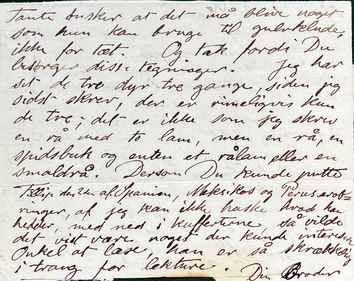 Tante ønsker at det må blive noget
som hun kan bruge til gulvklude,
ikke for tæt. Og tak fordi Du
besørger disse tegninger. Jeg har
set de tre dyr tre gange, siden jeg
sidst skrev, der er rimeligvis kun
de tre; det er ikke som jeg skrev
en rå med to lam, men en rå, en
spidsbuk og enten et rålam eller en
smaldrå. Dersom Du kunde putte
af Spaniens, Meksikos og Perus erob-
ringer, af jeg kan ikke huske hvad han
hedder, med ned i kufferterne, så vilde
det vist være noget der kunde interessere
Onkel at læse, han er så skrækkelig
i trang for lekture.
Din Broder